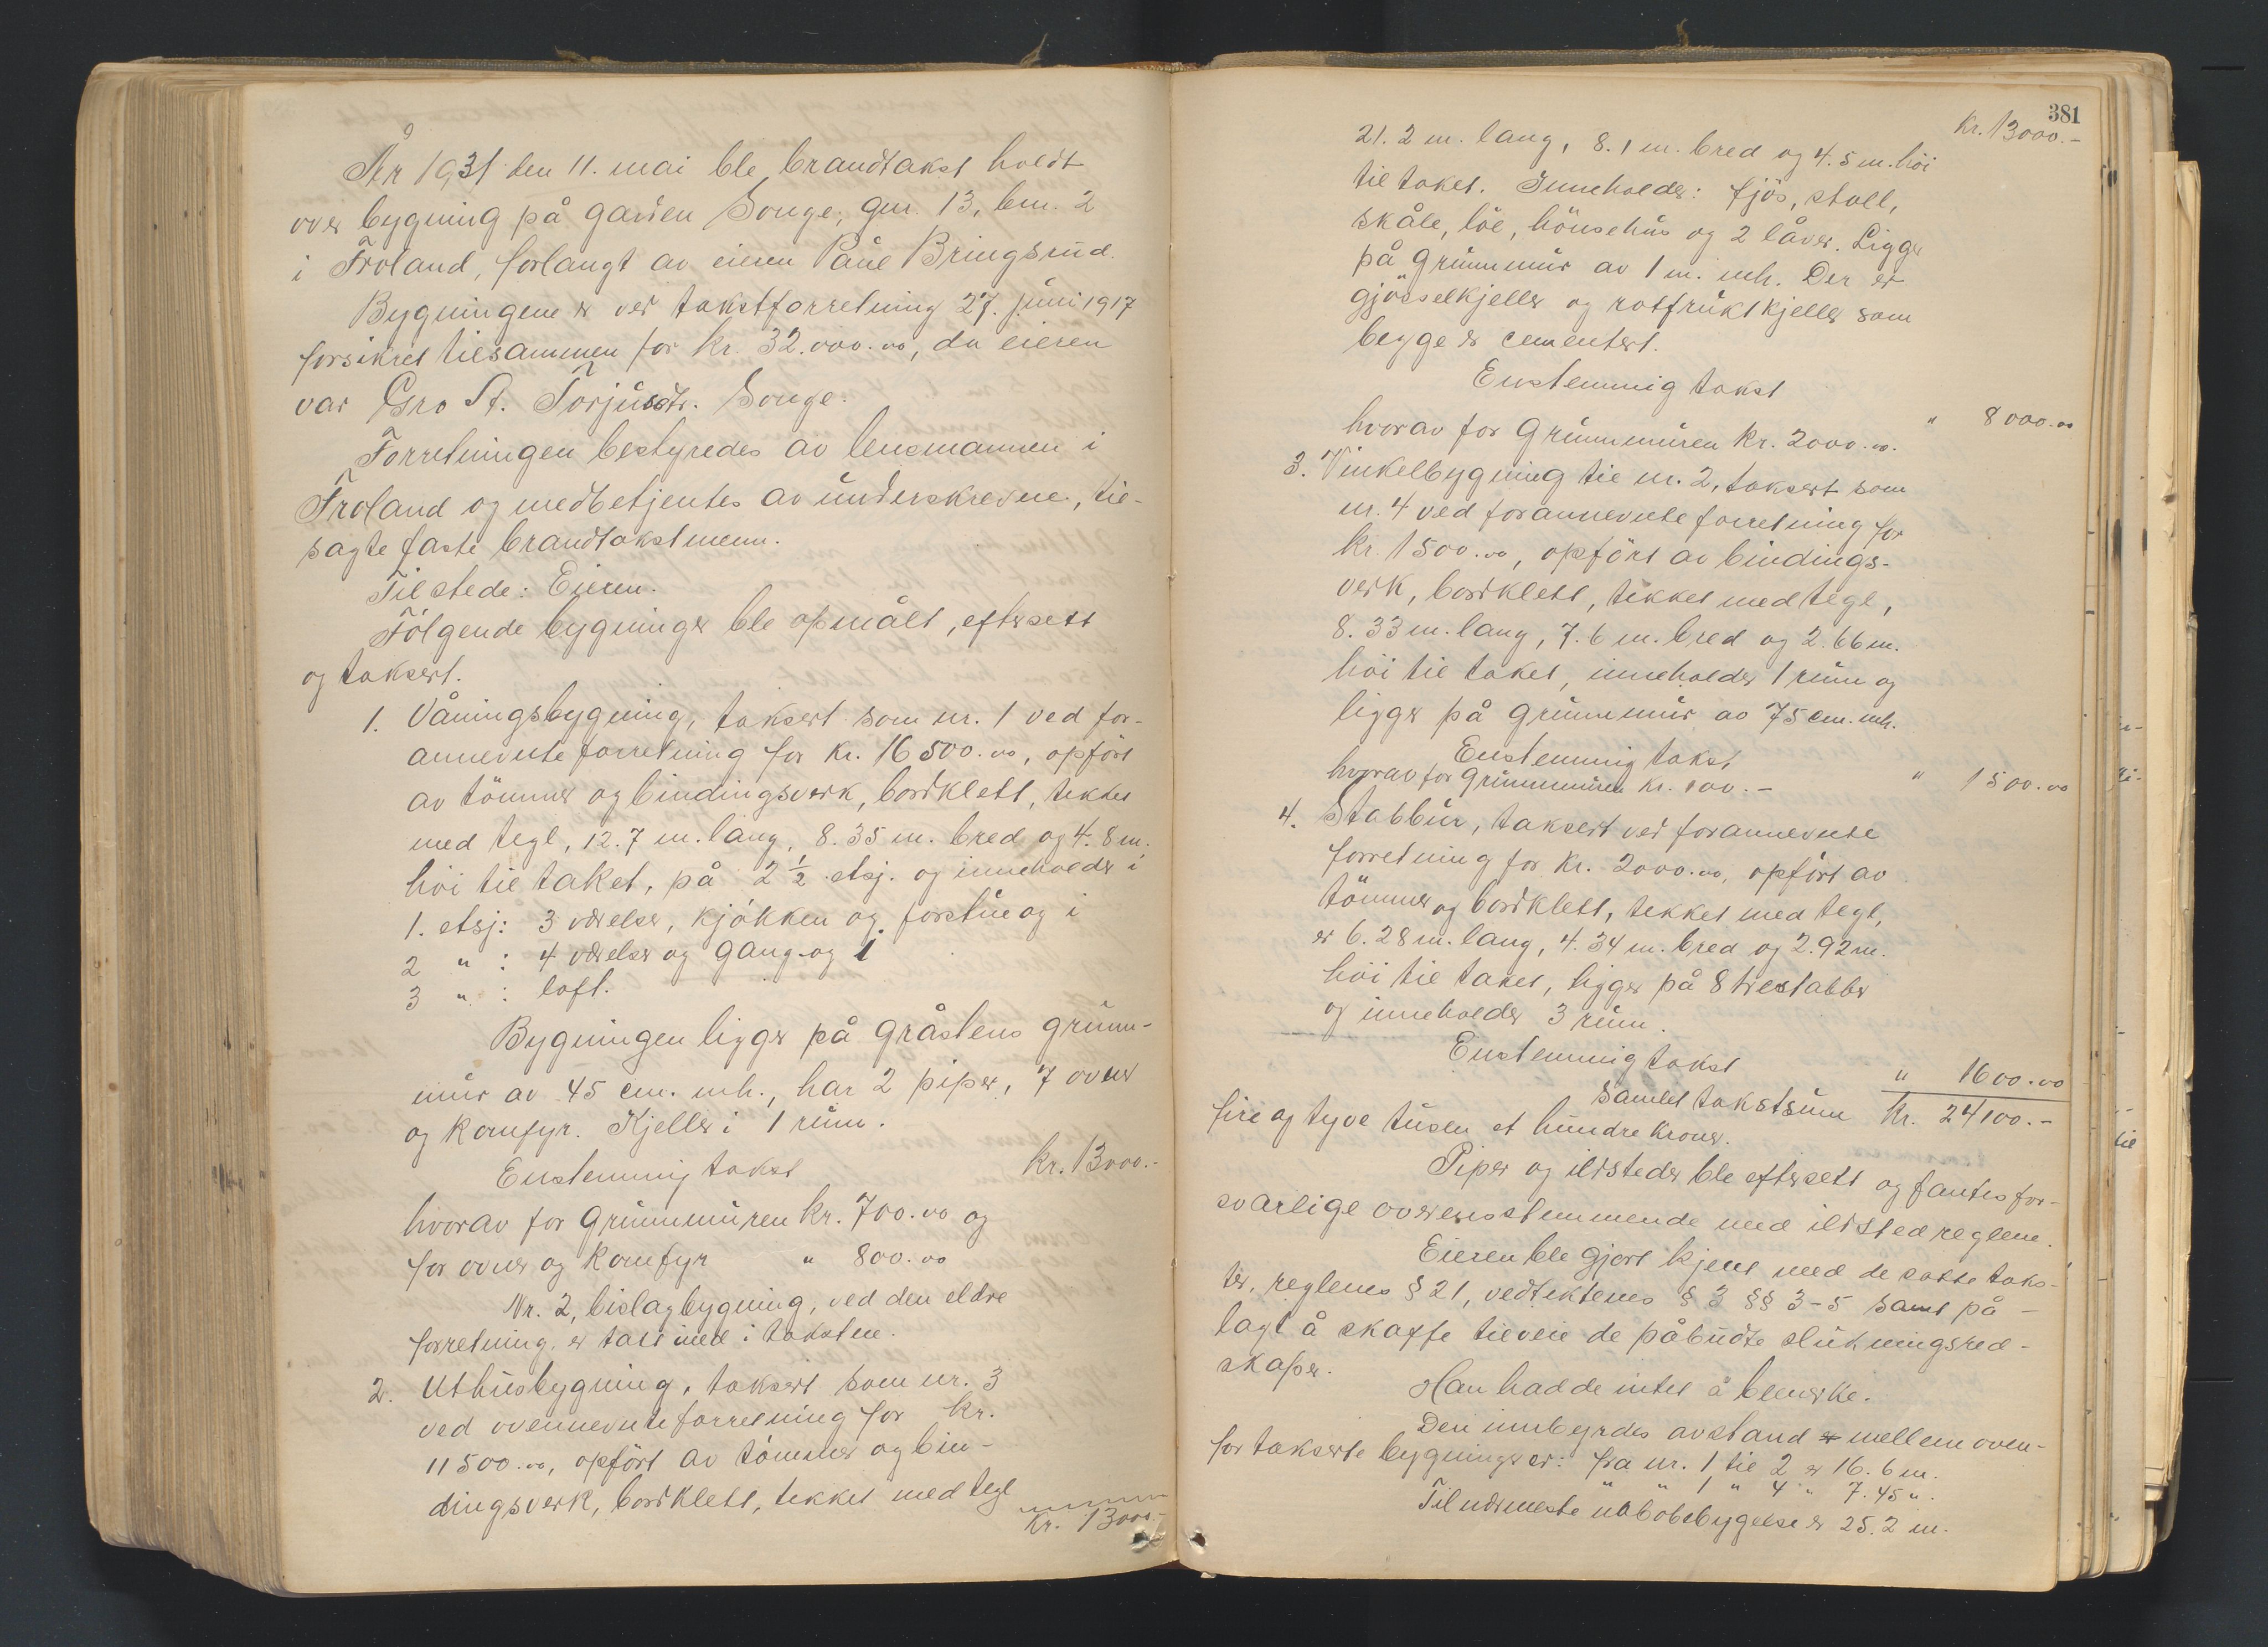 År 1931 den 11. mai ble brandtakst holdt
over bygning på garden Songe, gnr. 13, bnr. 2
i Froland, forlangt av eieren Paul Bringsrud.
Bygningene er ved takstforretning 27. juni 1917
forsikret tilsammen for kr. 32.000.00, da eieren
var Gro St. Torjusdtr. Songe.
Forretningen bestyredes av lensmannen i
Froland og medbetjentes av underskrevne, til-
sagte faste brandtakstmenn.
Tilstede: Eieren.
Følgende bygninger ble opmålt, eftersett
og taksert.
1. Våningsbygning, taksert som nr. 1 ved for-
annevnte forretning for kr. 16500.00, opført
av tömmer og bindingsverk, bordklett, tekket
med tegl, 12.7 m. lang, 8.35 m. bred og 4.8 m.
höi til taket, på 2 1/2 etsj. og inneholder i
1. etsj: 3 værelser, kjökken og forstue og i
2 " : 4 værelser og gang og i
3 " : loft.
Bygningen ligger på gråstens grunn-
mur av 45 cm. mh., har 2 piper, 7 ovner
og komfyr. Kjeller i 1 rum.
Enstemmig takst kr. 13000.-
hvorav for grunnmuren kr. 700.00 og
for ovner og komfyr " 800.00
Nr. 2, bislagbygning, ved den eldre
forretning, er tatt med i taksten.
2. Uthusbygning, taksert som nr. 3
ved ovennevnte forretning for kr.
11500.00, opført av tömmer og bin-
dingsverk, bordklett, tekket med tegl
Kr. 13000.-
381
Kr. 13000.-
21.2 m. lang, 8.1 m. bred og 4.5 m. höi
til taket. Inneholder: fjös, stall,
skåle, löe, hönsehus og 2 låver. Ligger
på grunnmur av 1 m. mh. Der er
gjödselkjeller og rotfruktkjeller som
begge er cementert.
Enstemmig takst " 8000.00
hvorav for grunnmuren kr. 2000.00.
3. Vinkelbygning til nr. 2, taksert som
nr. 4 ved forannevnte forretning for
kr. 1500.00, opfört av bindings-
verk, bordklett, tekket med tegl,
8.33 m. lang, 7.6 m. bred og 2.66 m.
höi til taket, inneholder 1 rum og
ligger på grunnmur av 75 cm. mh.
Enstemmig takst " 1500.00
hvorav for grunnmuren kr. 100.-
4. Stabbur, taksert ved forannevnte
forretning for kr. 2000.00, opfört av
tömmer og bordklett, tekket med tegl,
er 6.28 m. lang, 4.34 m. bred og 2.92 m.
höi til taket, ligger på 8 trestabber
og inneholder 3 rum.
Enstemmig takst " 1600.00
Samlet takstsum Kr. 24100.-
fire og tyve tusen et hundre kroner.
Piper og ildsteder ble eftersett og fantes for-
svarlige overensstemmende med ildstedreglene.
Eieren ble gjort kjent med de satte taks-
ter, reglenes § 21, vedtektenes § 3 §§ 3-5 samt på-
lagt å skaffe tilveie de påbudte slukningsred-
skaper.
Han hadde intet å bemerke.
Den innbyrdes avstand er mellem oven-
for takserte bygninger er: fra nr. 1 til 2 er 16.6 m.
" " 1 " 4 " 7.45 ".
Til nærmeste nabobebygelse er 25.2 m.